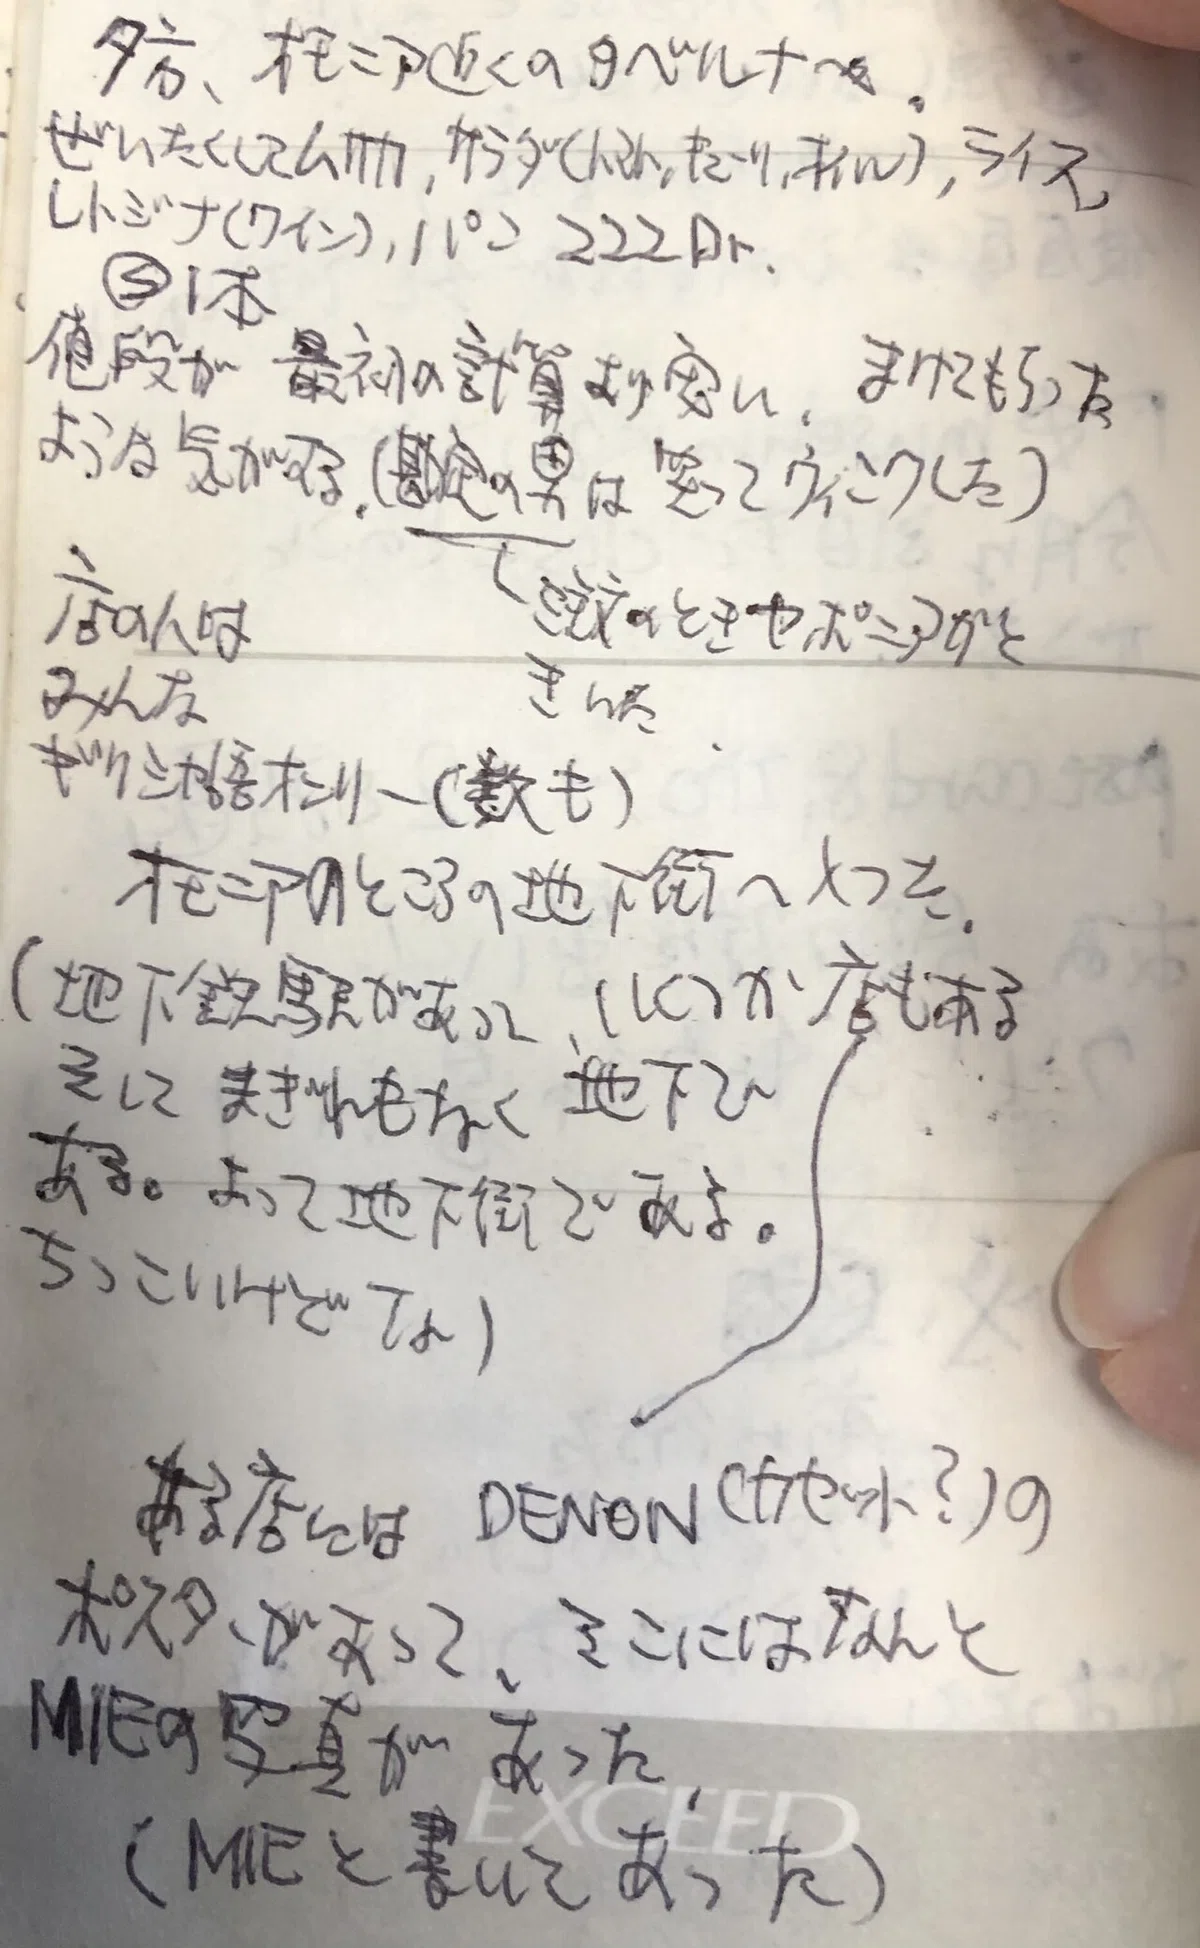 夕方、オモニア近くのタベルナへ.
ぜいたくしてムサカ,サラダ(トマト,キューリ,オイル),ライス,
レトジナ(ワイン),パン 222Dr.
Ⓢ1本
値段が 最初の計算より安い. まけてもらった
ような気がする.(勘定の男は 笑ってウィンクした)
店の人は
みんな
ギリシャ語オンリー(数も)
注文のときヤポニアかと
きいた.
オモニアのところの地下街へ入った.
(地下鉄駅があって、いくつか店もある.
そして まぎれもなく 地下で
ある。よって地下街である。
ちっこいけどてな)
ある店には DENON(カセット?)の
ポスターがあって、そこにはなんと
MIEの写真が あった.
(MIEと書いてあった)
EXCEED